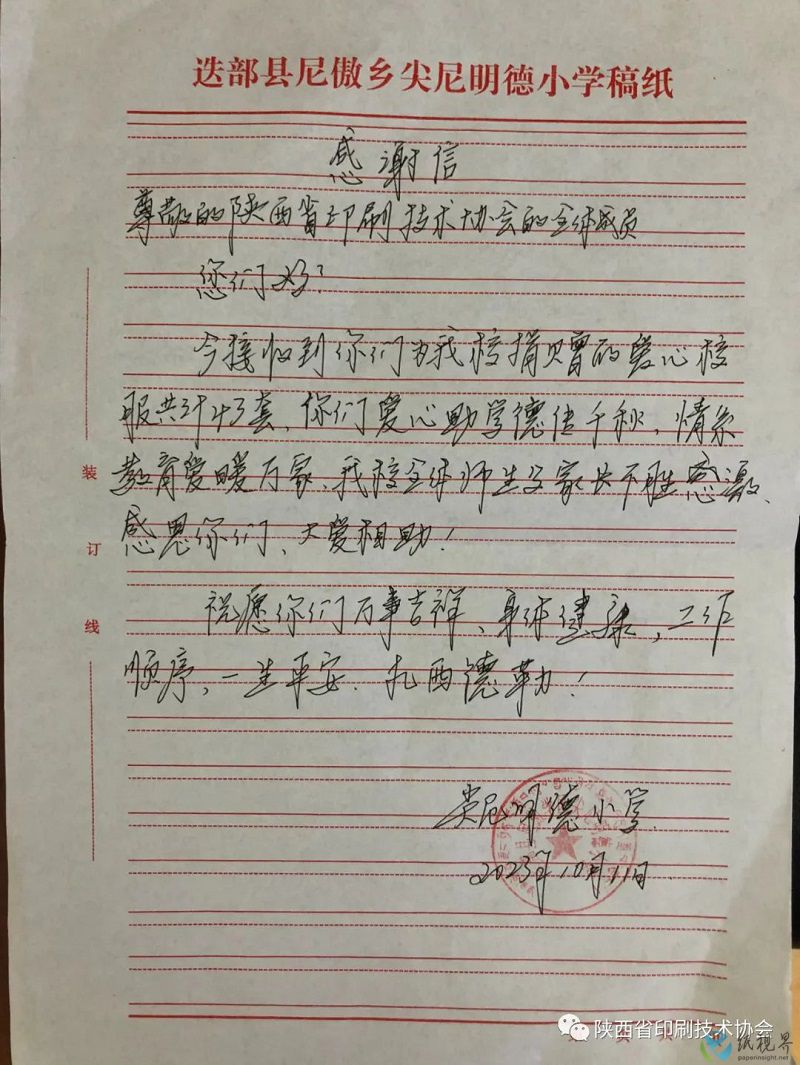 迭部县尼傲乡尖尼明德小学稿纸
感谢信
尊敬的陕西省印刷技术协会的全体成员
您们好!
今接收到你们为我校捐赠的爱心校
服共计43套、你们爱心助学德传千秋，情系
教育爱暖万家、我校全体师生及家长不胜感激、
感恩你们、大爱相助!
祝愿你们万事吉祥、身体健康，工作
顺序，一生平安．扎西德勒!
装
订
线
尖尼明德小学
2023年10月11日
陕西省印刷技术协会
纸视界
paperinsight.net